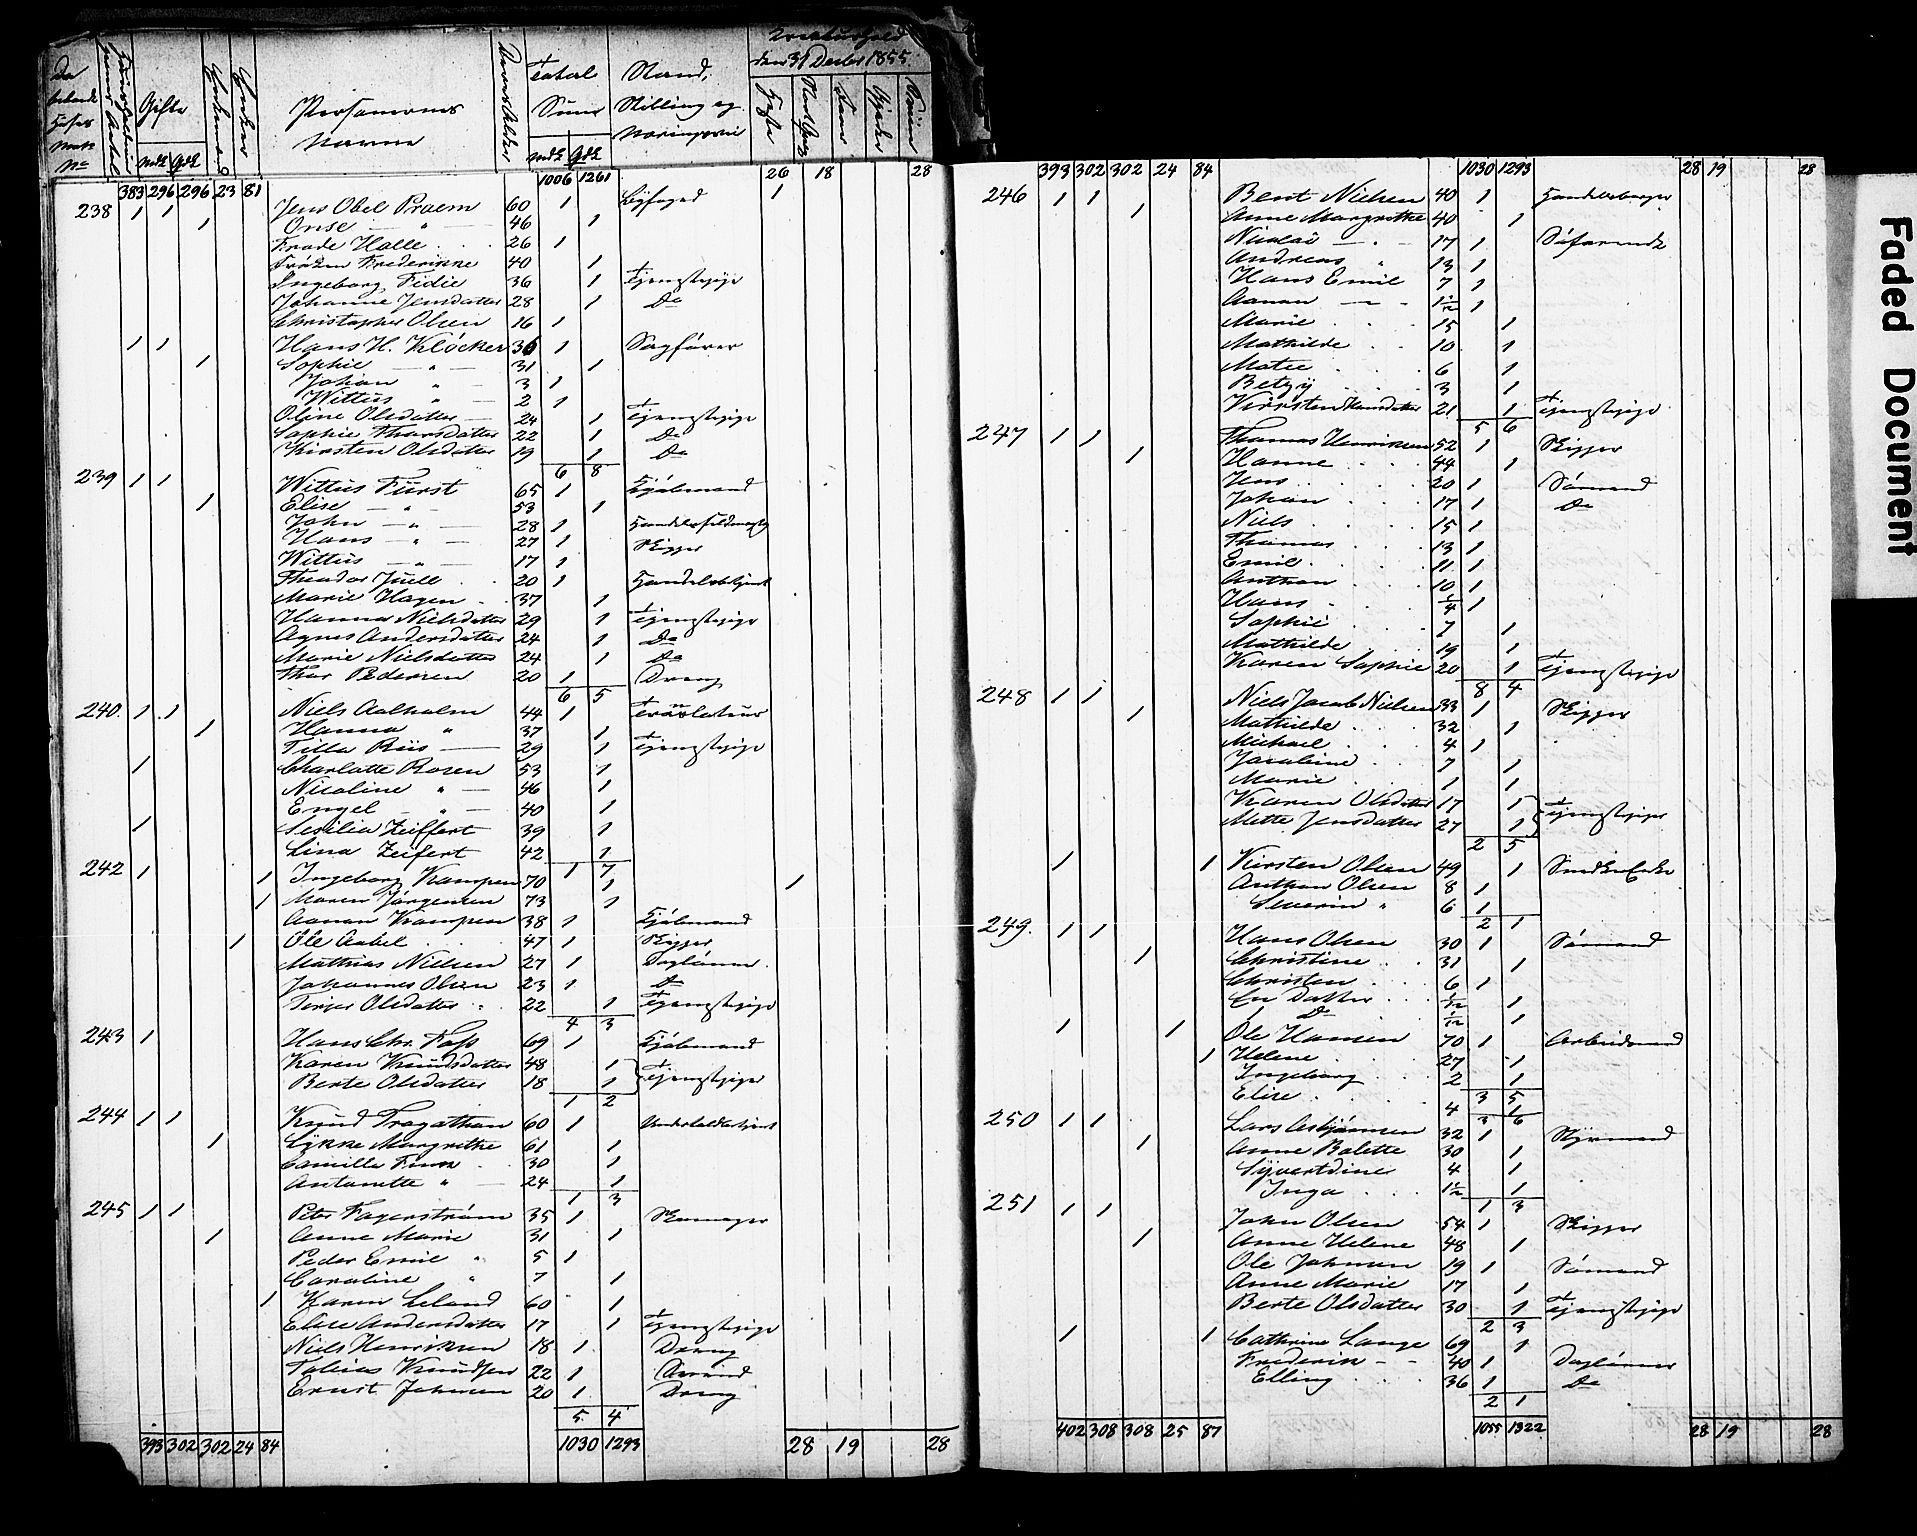 Faded Document
den 31 Decbr 1855
Gifte
Personernes
Navne
Total
Suma
Stand,
Stilling og
Mdk Qdk
383 296 296 23 81 1006 1261 26 18 28
238 1 1 Jens Obel Praem 60 1 Byfoged 1
1 Onse — " — 46 1
Frode Halle 26 1
Frøken Frederikke 40 1
Ingeborg Fidie 36 1 Tjenestepige
Johanne Jensdatter 28 1 Do
Christopher Olsen 16 1
1 1 Hans H. Kløcker 36 1 Sagfører
1 Sophie — " — 31 1
Johan " — 3 1
Wittus " — 2 1
Oline Olsdatter 24 1 Tjenestepige
Sophie Thorsdatter 22 1 Do
Kirsten Olsdatter 19 1 Do
6 8
239 1 1 Wittus Fürst 65 1 Kjøbmand
1 Elise — " — 53 1
John — " — 28 1 Handelsfuldmægtig
Hans — " — 27 1 Skipper
Wittus — " — 17 1
Theodor Juell 20 1 Handelsbetjent
Marie Hagen 37 1
Hanna Nielsdatter 29 1 Tjenestepige
Agnes Andersdatter 24 1 Do
Marie Nielsdatter 24 1 Do
Thor Pedersen 20 1 Dreng
6 5
240. 1 1 Niels Aalholm 44 1 Translatuer
1 Hanna " 37 1
Tilla Riis 29 1 Tjenestepige
1 Charlotte Rosen 53 1
Nicoline " — 46 1
Engel — " — 40 1
1 Sesilia Zeiffert 39 1
Lina Zeifert 42 1
1 7
242 1 1 Ingeborg Kampen 70 1 1
1 Maren Jørgensen 73 1
Aanon Kampen 38 1 Kjøbmand
1 Ole Aabel 47 1 Skipper
Mathias Nielsen 27 1 Dagløner
Johannes Olsen 23 1 Do
Terjer Olsdatter 22 1 Tjenestepige
4 3
243 1 Hans Chr. Foss 69 1 Kjøbmand
Karen Knudsdatter 48 1
Berte Olsdatter 18 1 Tjenestepiger
1 2
244 1 1 Knud Tragethon 60 1 Undertoldbetjent
1 Lykke Margrethe 61 1
Camilla Finn 30 1
Antonette " — 24 1
1 3
245 1 1 Peter Fagerstrøm 35 1 Skomager
1 Anne Marie 31 1
Peder Emil " 5 1
Caroline " 7 1
1 Karen Leland 60 1
Elise Andersdatter 17 1 Tjenestepige
Niels Henriksen 18 1 Dreng
Tobias Knudsen 22 1
Ernst Johnsen 20 1 Dreng
5 4
393 302 302 24 84 1030 1293 28 19 28
393 302 302 24 84 1030 1293 28 19 28
246 1 1 Bent Nielsen 40 1 Handelsborger
1 Anne Margrethe 40 1
Nicolai — " — 17 1 Søfarende
Andreas " 13 1
Hans Emil 7 1
Aanon — — 1 1/2 1
Marie 15 1
Mathilde 10 1
Matie 6 1
Betzy 3 1
Kirsten Hansdatter 21 1 Tjenestepige
5 6
247 1 1 Thomas Henriksen 52 1 Skipper
1 Hanne 44 1
Jens 20 1 Sømand
Johan 17 1 Do
Niels 15 1
Thomas 13 1
Emil 11 1
Anthon 10 1
Hans 1/4 1
Sophie 7 1
Mathilde 19 1
Karen Sophie 20 1 Tjenestepige
8 4
248 1 1 Niels Jacob Nielsen 33 1 Skipper
1 Mathilde 32 1
Michael 4 1
Jacobine 7 1
Marie 1 1
Karen Olsdatter 17 1
Mette Jensdatter 27 1 Tjenestepiger
2 5
1 1 Kirsten Olsen 49 1
Anthon Olsen 8 1
Severin " 6 1
2 1
249. 1 1 Hans Olsen 30 1 Sømand
1 Christine 31 1
Christen 6 1
En Datter 1/12 1
Do 1/12 1
1 1 Ole Hansen 70 1 Arbeidsmand
1 Helene 27 1
Ingeborg 2 1
3 5
Elise 4 1
3 6
250 1 1 Lars Asbjørnsen 32 1 Styrmand
1 Anne Bolette 30 1
Syvertdine 4 1
Inga 1 1/2 1
1 3
251 1 1 John Olsen 54 1 Skipper
1 Anne Helene 48 1
Ole Johnsen 19 1 Sømand
Anne Marie 17 1
Berte Olsdatter 30 1 Tjenestepige
2 3
1 1 Cathrine Lange 69 1
Frederik — — 40 1 Dagløner
Elling 36 1 Do
2 1
402 308 308 25 87 1055 1322 28 19 28